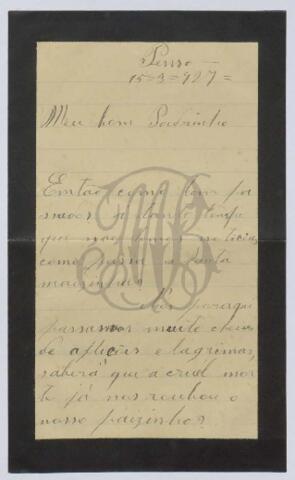 Penso
15=3=927=
Meu bom Padrinho
Então como tem pa
que não temos noticias
como passa a
maizinha?
Nós paraqui
passamos muito cheios
de aflições e lagrimas,
saberá que a cruel mor
te já nos roubou o
nosso paizinho?